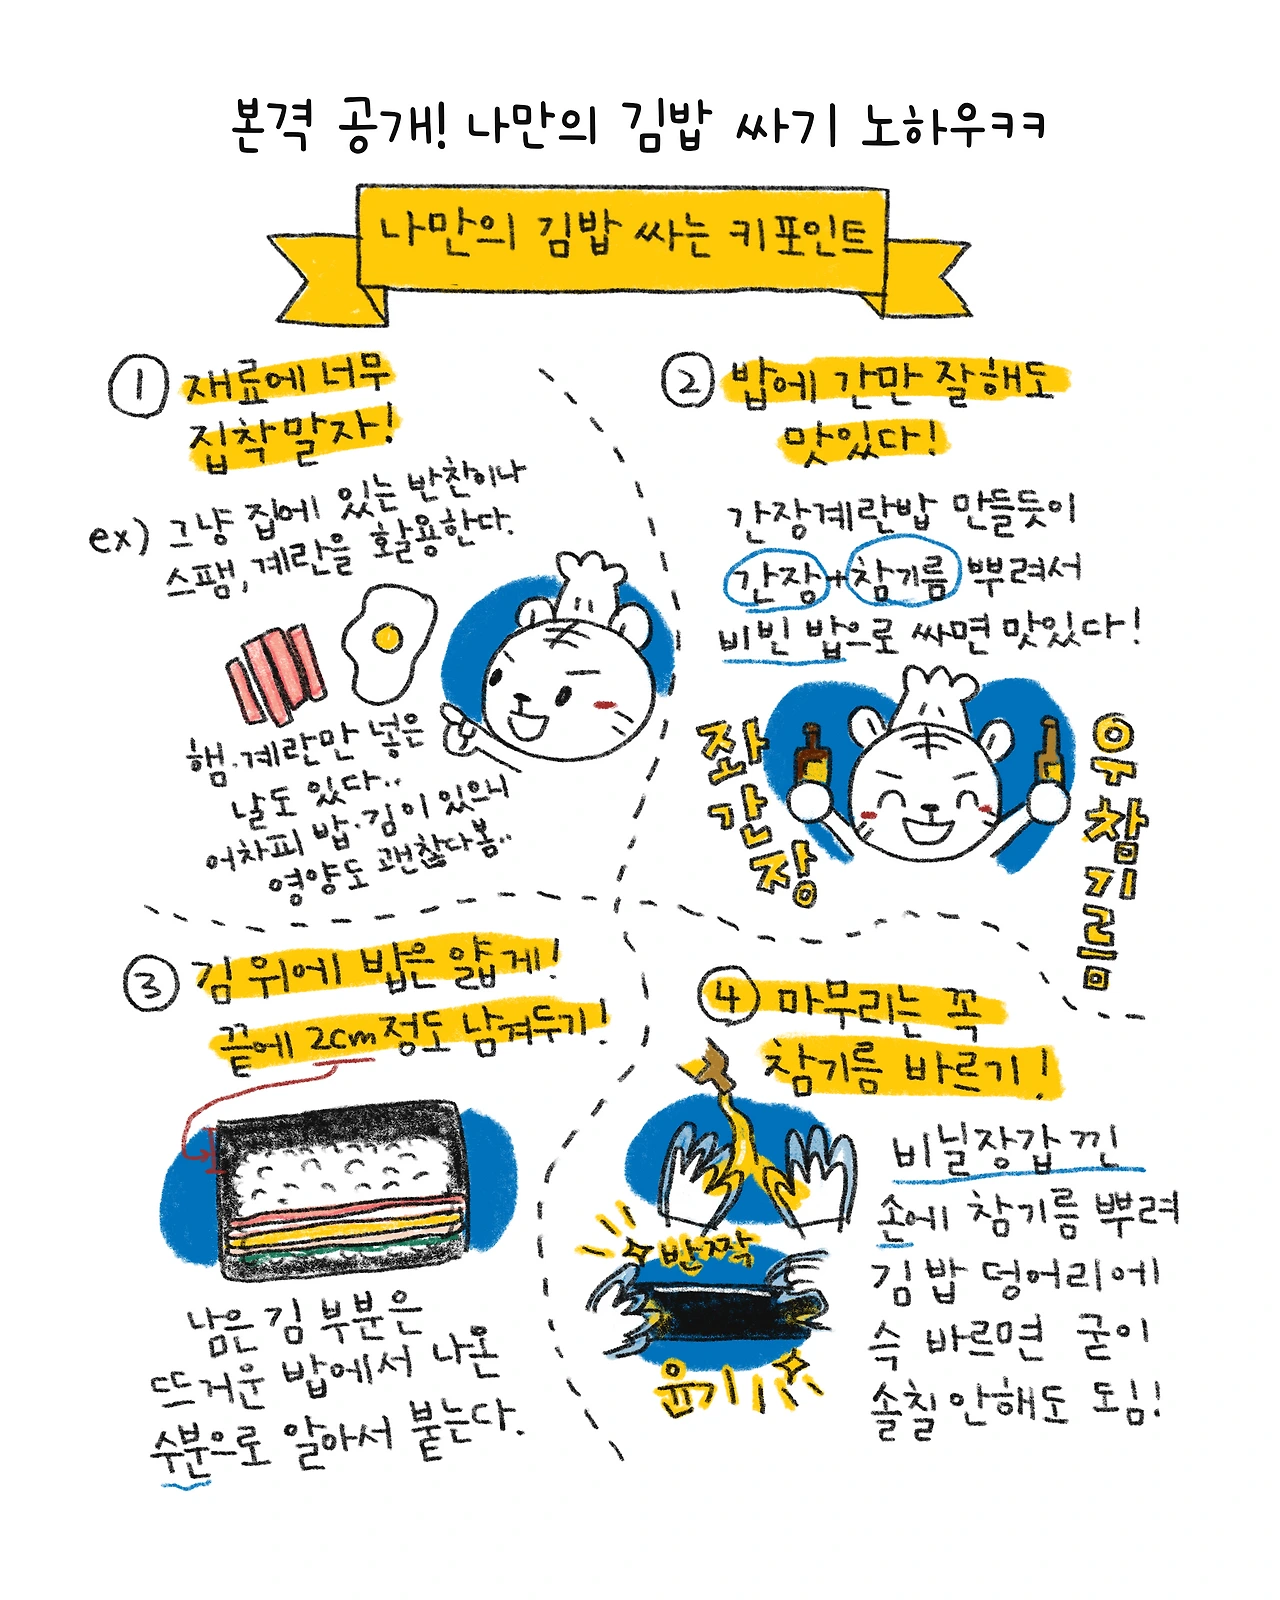 본격 공개! 나만의 김밥 싸기 노하우ㅋㅋ
나만의 김밥 싸는 키포인트
① 재료에 너무
집착말자!
ex) 그냥 집에 있는 반찬이나
스팸, 계란을 활용한다.
햄·계란만 넣은
날도 있다..
어차피 밥·김이 있으니
영양도 괜찮다봄..
② 밥에 간만 잘해도
맛있다!
간장계란밥 만들듯이
간장+참기름 뿌려서
비빈 밥으로 싸면 맛있다!
좌간장
우참기름
③ 김 위에 밥은 얇게!
끝에 2cm정도 남겨두기!
남은 김 부분은
뜨거운 밥에서 나온
수분으로 알아서 붙는다.
④ 마무리는 꼭
참기름 바르기!
비닐장갑 낀
손에 참기름 뿌려
김밥 덩어리에
슥 바르면 굳이
솔칠안해도 도님!
반짝
윤기